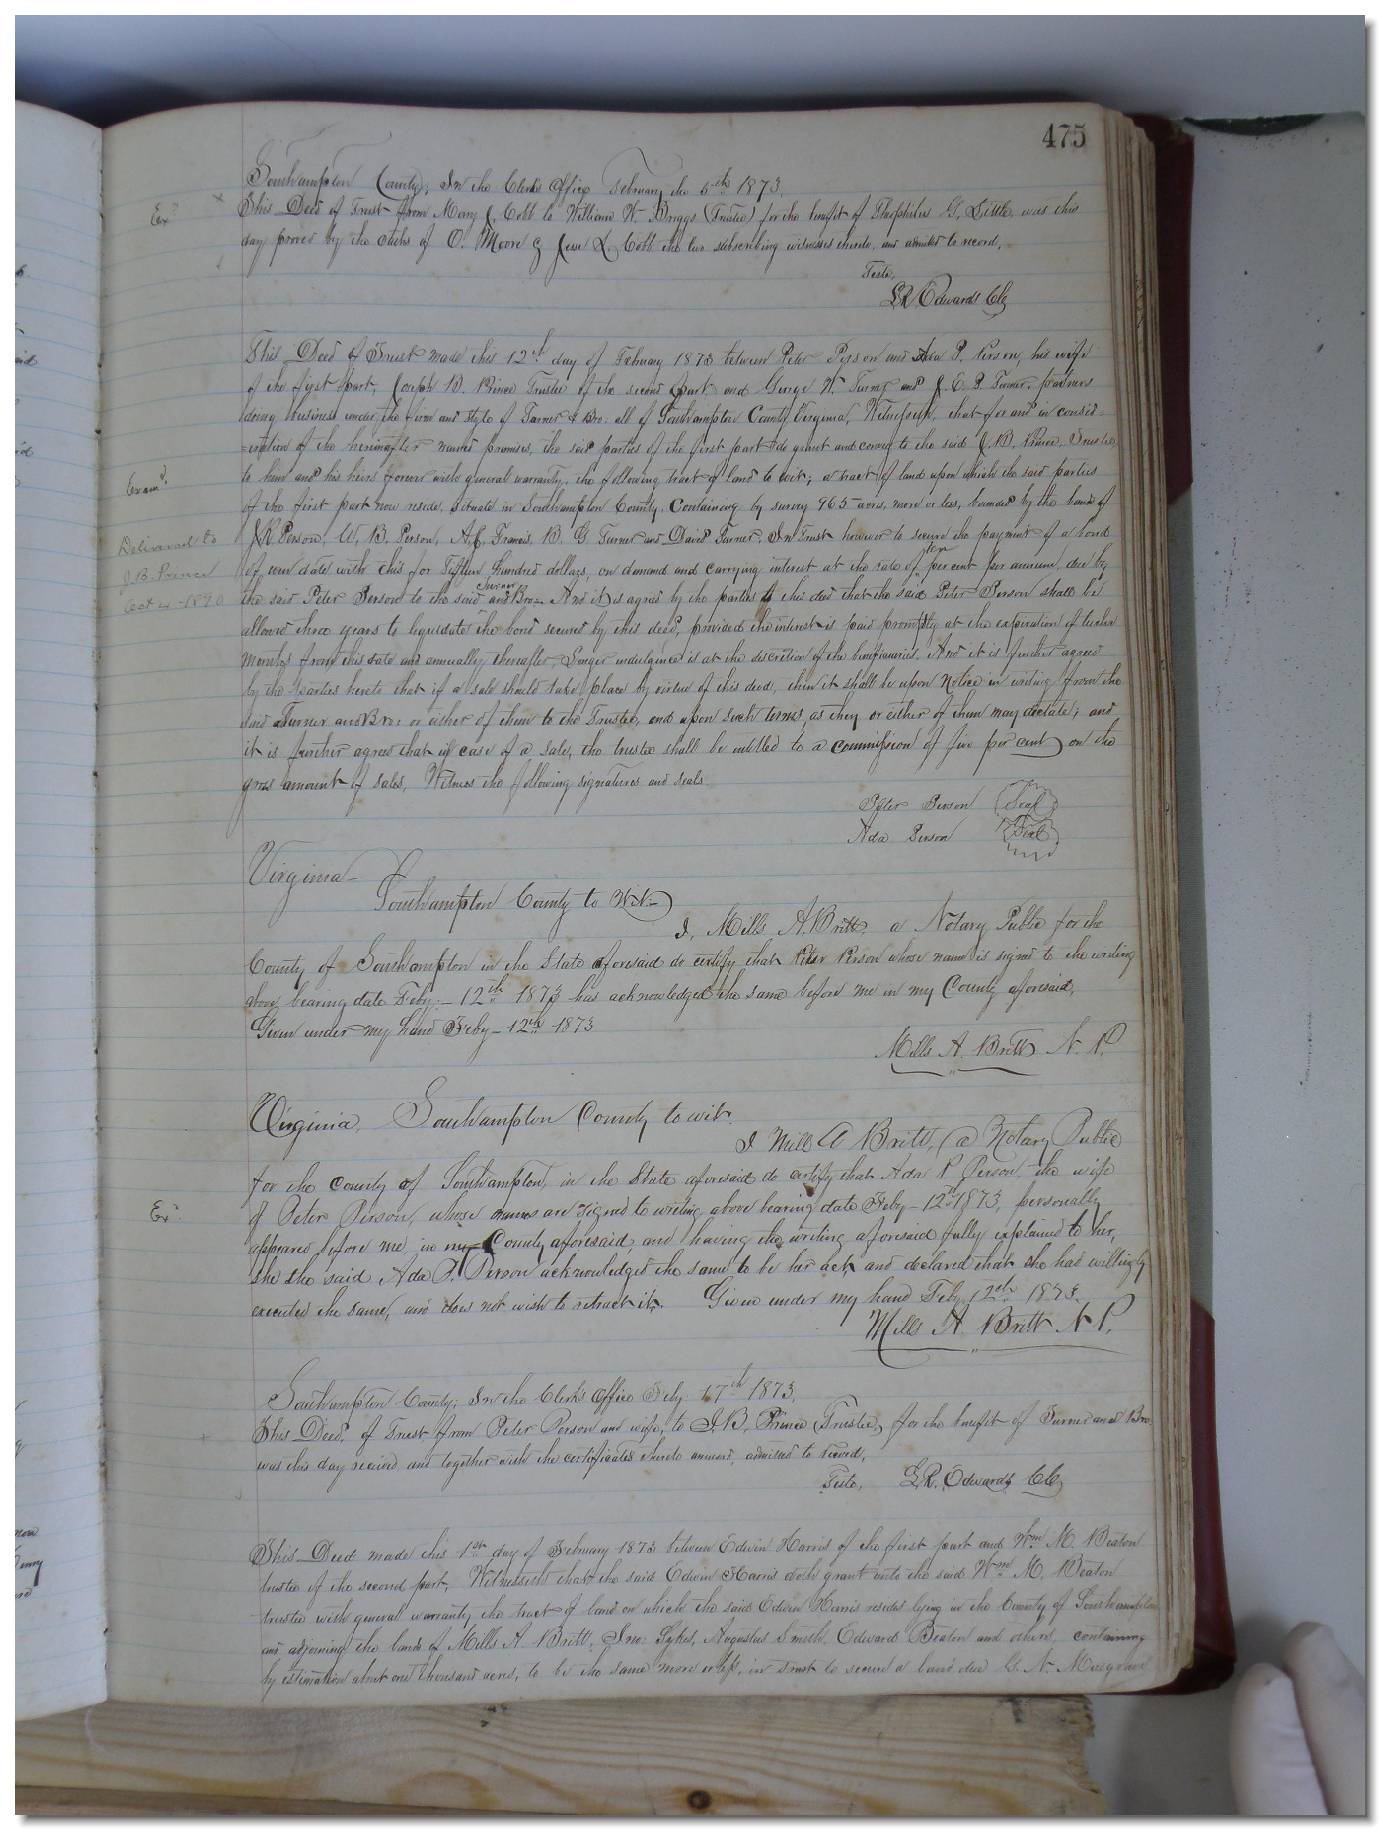 475
Southampton County; In the Clerks Office February the 5th 1873.
Exd
This Deed of Trust from Mary J. Cobb to William W. Briggs (Trustee) for the benefit of Theophilus G. Little, was this
day proved by the oaths of O. Moore & Jesse L. Cobb the two subscribing witnesses thereto, and admitted to record,
Teste,
L R Edwards Clk
This Deed of Trust made this 12th day of February 1873 between Peter Person and Ada P. Person, his wife
of the first part, Joseph B. Prince Trustee of the second part and George W. Turner and J. E. P. Turner, partners
doing business under the firm and style of Turner & Bro. all of Southampton County Virginia, Witnesseth, that for and in consid-
eration of the hereinafter named promises, the said parties of the first part do grant and convey to the said J. B. Prince, Trustee,
to him and his heirs forever with general warranty, the following tract of land to wit; a tract of land upon which the said parties
Examd.
of the first part now reside, situate in Southampton County, Containing by survey 965 acres, more or less, bounded by the lands of
J. R. Person, W. B. Person, A. J. Francis, B. G Turner and David Turner, In Trust however to secure the payment of a bond
Delivered to
of even date with this for Fifteen hundred dollars, on demand and carrying interest at the rate of ten per cent per annum, due by
J. B. Prince
Oct 4 - 1890
the said Peter Person to the said Turner and Bro- And it is agreed by the parties to this deed that the said Peter Person shall be
allowed three years to liquidate the bond secured by this deed, provided the interest is paid promptly at the expiration of twelve
months from this date and annually thereafter, Longer indulgence is at the discretion of the beneficiaries. And it is further agreed
by the parties hereto that if a sale should take place by virtue of this deed, then it shall be upon Notice in writing from the
said Turner and Bro: or either of them to the Trustee, and upon such terms as they or either of them may dictate; and
it is further agreed that in case of a sale, the trustee shall be entitled to a commission of five per cent on the
gross amount of sales, Witness the following signatures and seals.
Peter Person Seal
Ada Person Seal
Virginia-
Southampton County to Wit-
I, Mills A. Britt, a Notary Public for the
County of Southampton in the State aforesaid do certify that Peter Person whose name is signed to the writing
above bearing date Feby - 12th 1873 has acknowledged the same before me in my County aforesaid,
Given under my hand Feby - 12th 1873
Mills A. Britt N. P.
Virginia, Southampton County to wit.
I Mills A Britt, a Notary Public
for the County of Southampton, in the State aforesaid do certify that Ada P Person the wife
Exd
of Peter Person, whose names are signed to writing above bearing date Feby - 12th 1873, personally
appeared before me in my County aforesaid, and having the writing aforesaid fully explained to her,
she the said Ada P. Person acknowledged the same to be her act, and declared that she had willingly
executed the same, and does not wish to retract it. Given under my hand Feby 12th 1873.
Mills A. Britt N. P.
Southampton County; In the Clerks Office Feby 17th 1873,
This Deed, of Trust from Peter Person and wife, to J. B. Prince (Trustee,) for the benefit of Turner and Bro.
was this day received and together with the certificates thereto annexed, admitted to record,
Teste, L. R. Edwards Clk
This Deed made this 1st day of February 1873 between Edwin Harris of the first part and Wm M. Beaton
trustee of the second part, Witnesseth that the said Edwin Harris doth grant unto the said Wm M. Beaton
trustee with general warranty the tract of land on which the said Edwin Harris resides lying in the County of Southampton
and adjoining the lands of Mills A. Britt, Jno. Sykes, Augustus Smith, Edward Beaton and others, containing
by estimation about one thousand acres, to be the same more or less, in trust to secure a bond due G. N. Musgrave